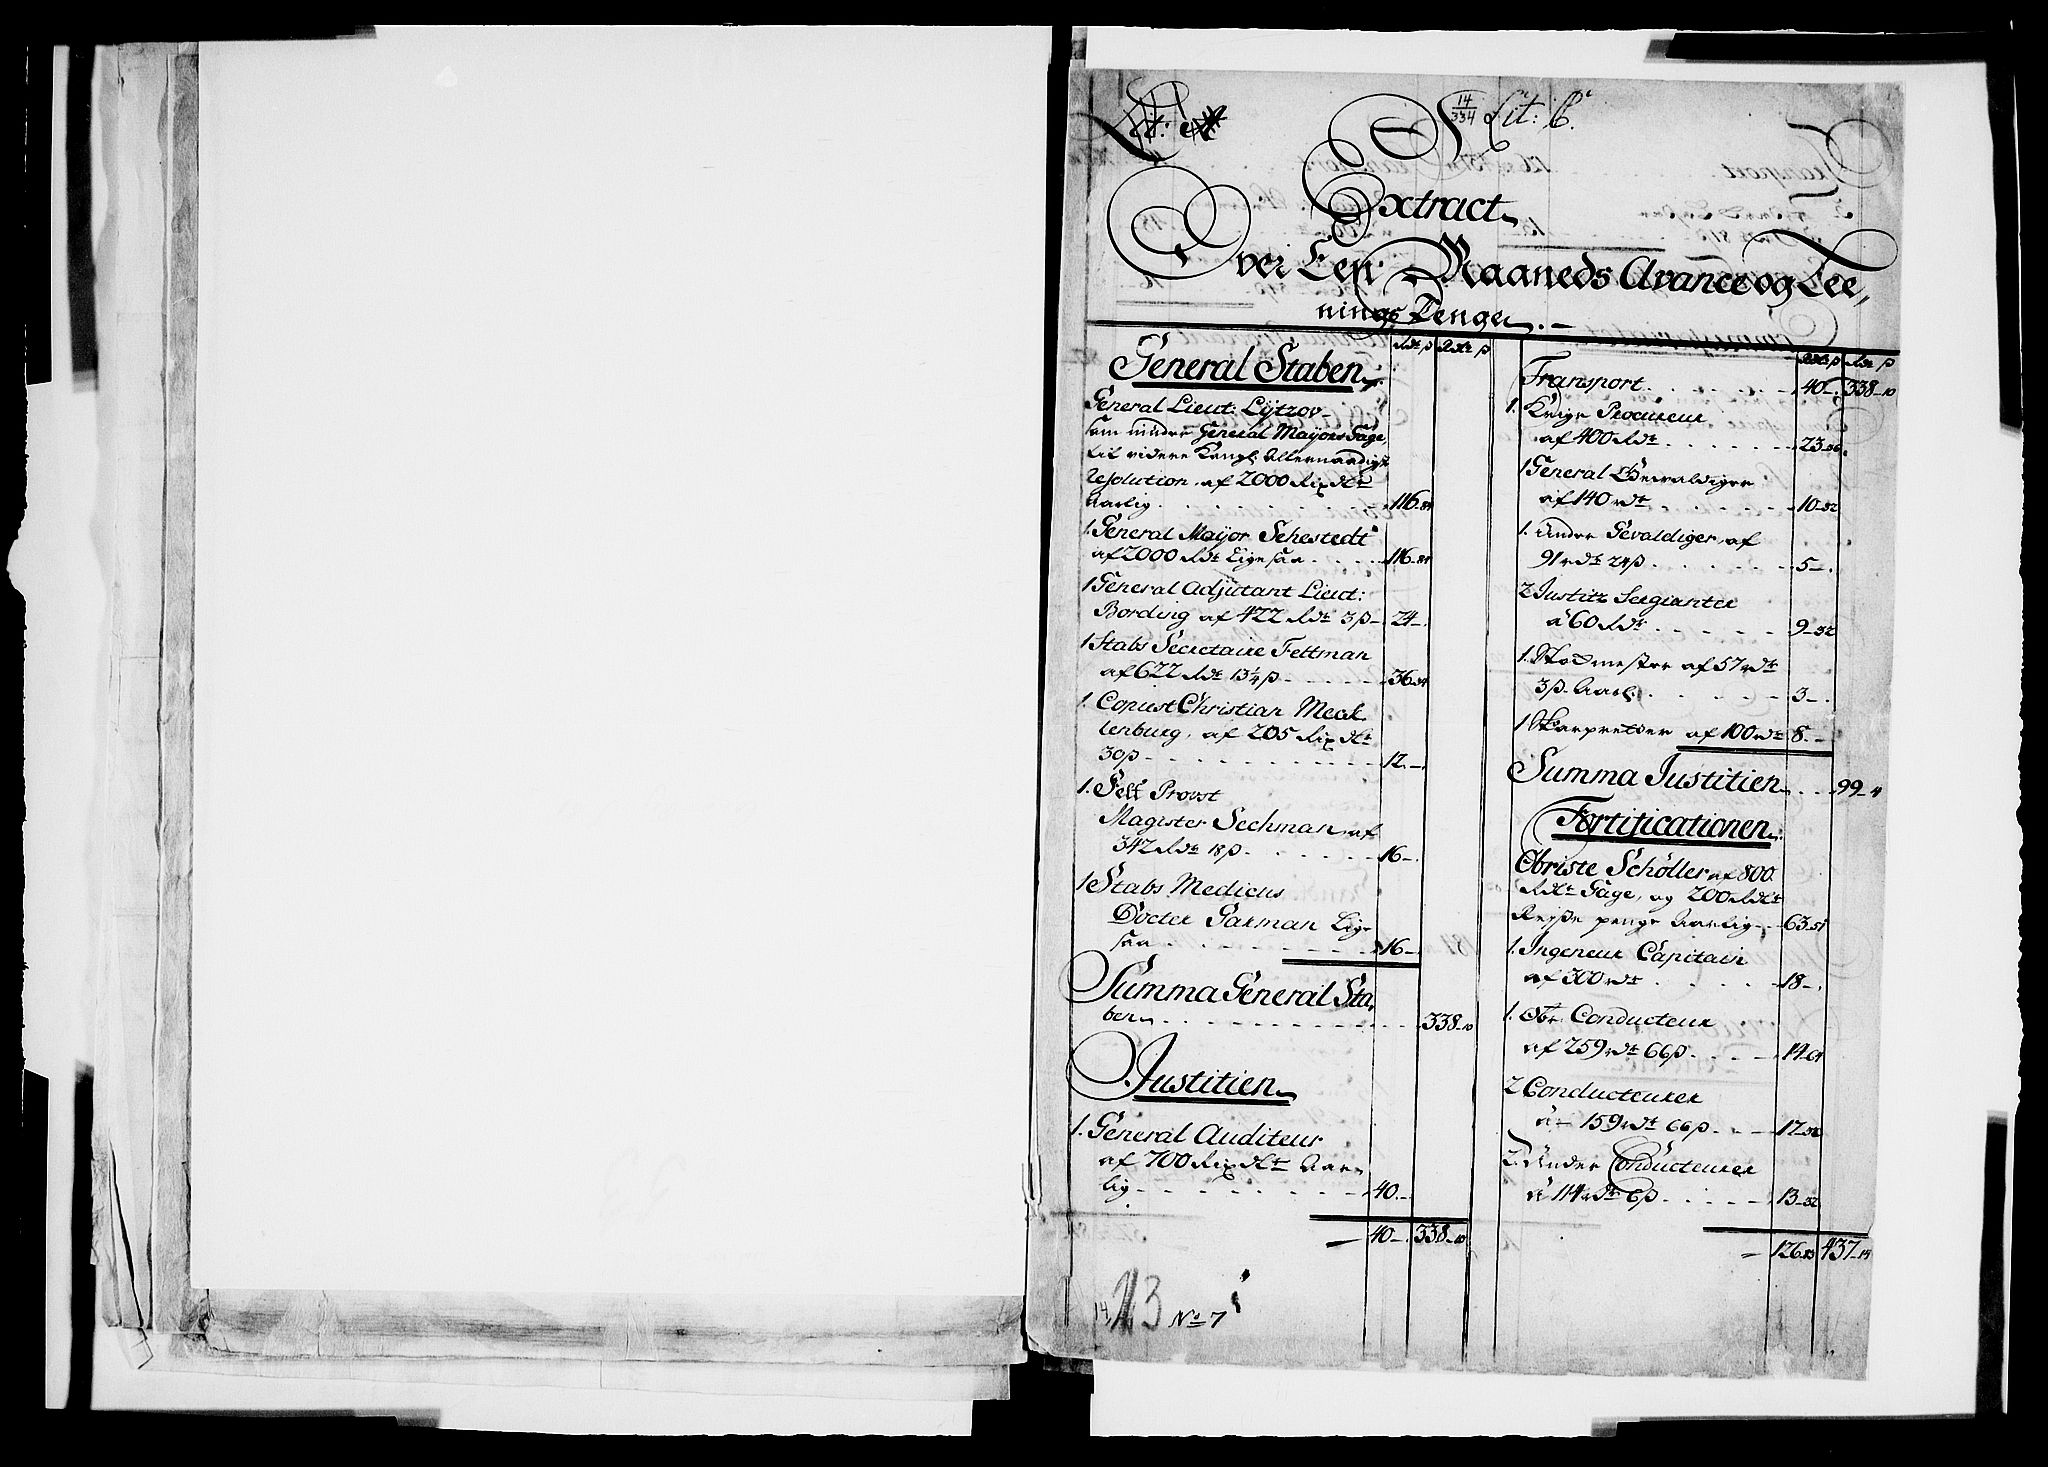 14/334 Lit: B.
Extract
Over Een Maaneds Avance og Lee,
nings Penge.
Rdr ß Rdr ß
General Staben
General Lieut: Lÿtzov
som nÿder General Mayors Gage,
til videre Kongl: Allernaadigst
Resolution, af 2000 Rixdlr
Aarlig . . . 116-84
1. General Mayor Sehestedt
af 2000 Rdr Ligesaa . . . 116-84
1 General Adjutant Lieut:
Bording af 422 Rdr 3ß 24-.
1 Stabs Secretaire Fettman
af 622 Rdr 13¼ß . . . 36-34
1. Copiist Christian Meck
lenburg, af 205 Rixdlr
30ß . . . 12.-.
1. Felt Provst
Magister Sechman, af
342 Rdr 18ß . . . 16-.
1 Stabs Medicus
Docter Garman Lige
saa . . . 16-.
Summa General Sta,
ben . . . 338-10
Justitien
1. General Auditeur
af 700 Rixdlr Aar,
lig . . . 40.-
40-. 338-10
1423 No 7
Rdr ß Rdr ß
Transport . . . 40-. 338-10
1. Krigs Procureur
af 400 Rdr . . . 23-36.
1 General Gevaldiger
af 140 rdr . . . 10-32
1. Under Gevaldiger, af
91 rdr 24ß . . . 5-.
2 Justitz Sergianter
a 60 Rdr . . . 9-32
1. Stokmester af 57 rdr
3ß Aarl: . . . 3-.
1 Skarpretter af 100 rdr 8.-
Summa Justitien . . . 99-4
Fortificationen
Obriste Schøller af 800
Rdlr Gage, og 200 Rdlr
Rejse penge Aarlig 63-51
1. Ingenieur Capitain
af 300 rdr . . . 18-.
1. Obr Conducteur
af 259 rdr 66ß . . . 14-64
2 Conducteurer
a 159 rdr 66ß . . . 17-36
2. Under Conducteurer
a 114 rdr 6ß . . . 13-32
126-83 437-14